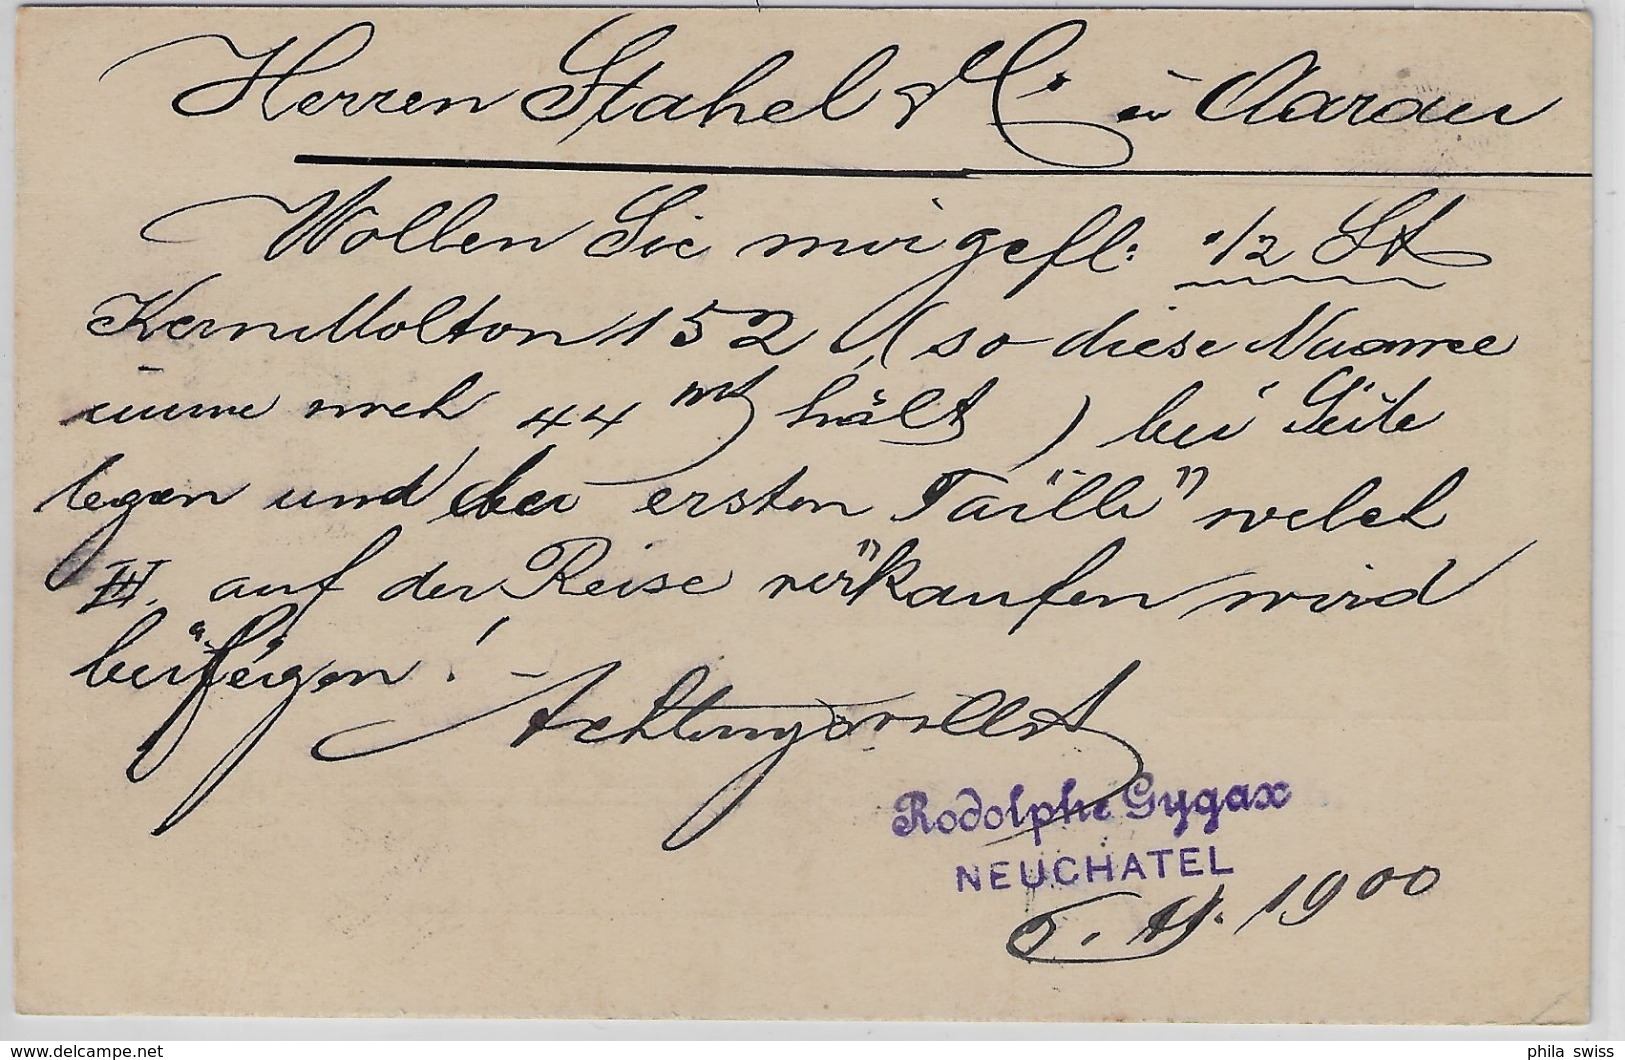 Herren Stahel & Cie in Aarau
Wollen Sie mir gefl: 1/2 St
Kern Molton 152 (so diese Nuance
immer noch 44 mt hält) bei Seite
legen und der ersten "Taille" welch
auf der Reise verkaufen wird
beifügen! -
Achtungsvollst
Rodolphe Gygax
NEUCHATEL
1900
phila swiss
delcampe.net